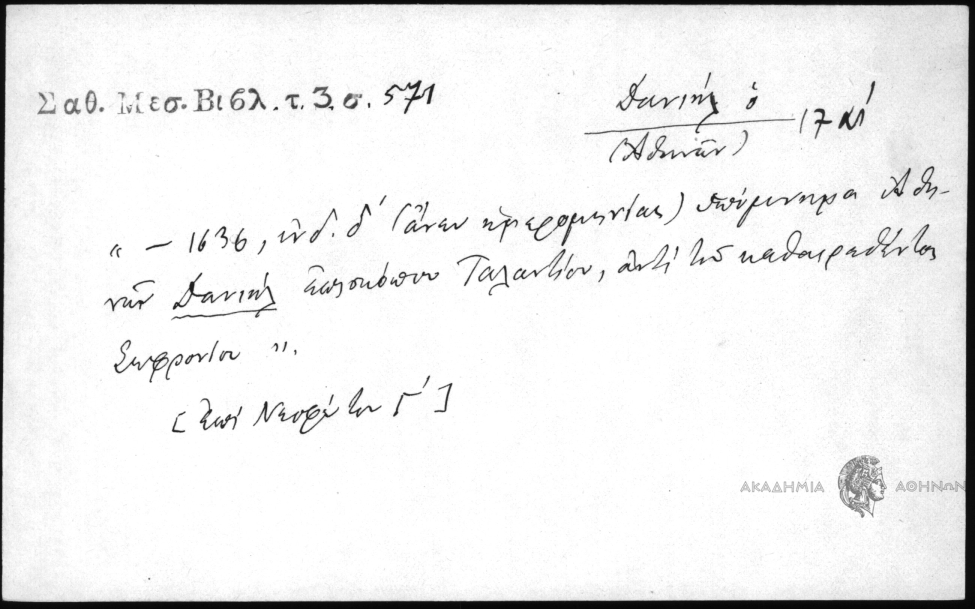 Σαθ. Μεσ. Βιβλ. τ. 3. σ. 571
Δανιήλ ὁ
(Ἀθηνῶν)
17 αἰ
“ – 1636, ἰνδ. δ΄ (ἄνευ ἡμερομηνίας) ὑπόμνημα Ἀθη-
νῶν Δανιήλ ἐπισκόπου Ταλαντίου, ἀντί τοῦ καθαιρεθέντος
Σωφρονίου ”.
[ἐπί Νεοφύτου Γ΄]
ΑΚΑΔΗΜΙΑ ΑΘΗΝΩΝ